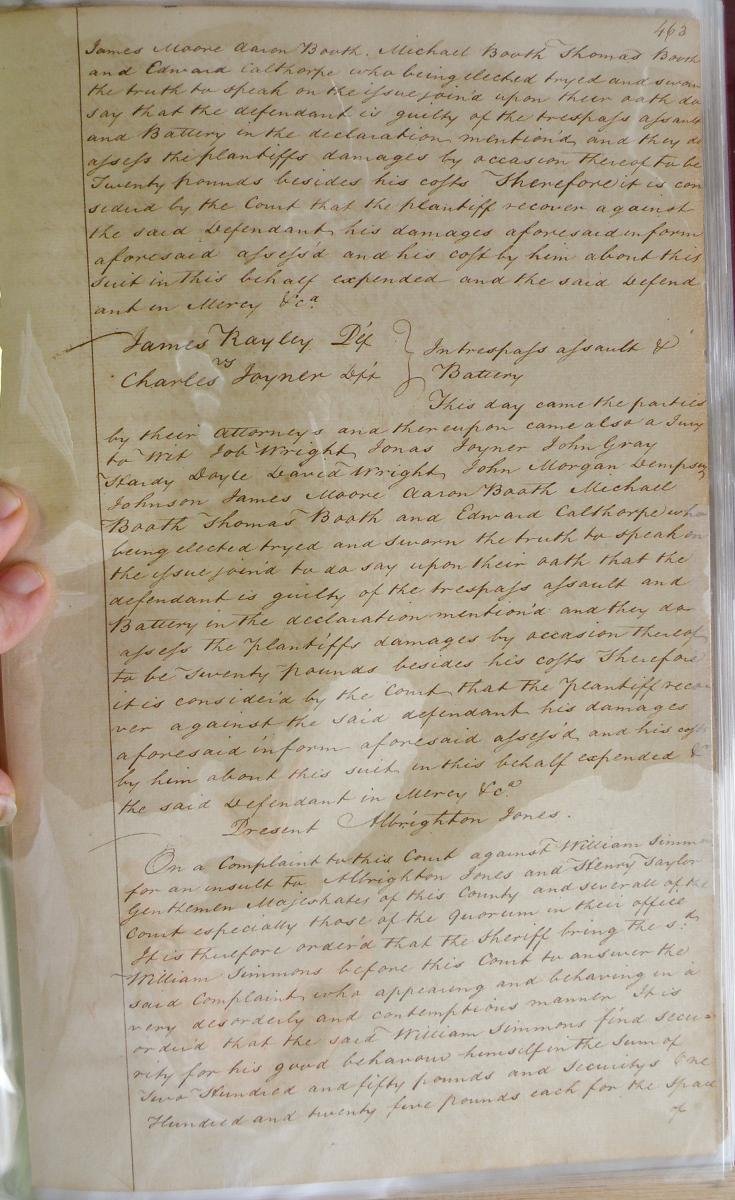 463
James Moore Aaron Booth. Michael Booth Thomas Booth
and Edward Calthorpe who being elected tryed and sworn
the truth to speak on the issue join'd upon their oath do
say that the defendant is guilty of the trespass assault
and Battery in the declaration mention'd and they do
assess the plantiffs damages by occasion thereof to be
Twenty pounds besides his costs Therefore it is con
siderd by the Court that the plantiff recover against
the said Defendant his damages aforesaid in form
aforesaid assess'd and his cost by him about this
suit in this behalf expended and the said Defend
ant in Mercy &ca
James Kayley Plt
vs
Charles Joyner Dft
In trespass assault &
Battery
This day came the parties
by their attorneys and thereupon came also a Jury
to Wit Job Wright Jonas Joyner John Gray
Hardy Doyle David Wright John Morgan Dempsey
Johnson James Moore Aaron Booth Michael
Booth Thomas Booth and Edward Calthorpe who
being elected tryed and sworn the truth to speak on
the issue join'd to do say upon their oath that the
defendant is guilty of the trespass assault and
Battery in the declaration mention'd and they do
assess the Plantiffs damages by occasion thereof
to be Twenty pounds besides his costs Therefore
it is consider'd by the Court that the Plantiff reco
ver against the said defendant his damages
aforesaid in form aforesaid assess'd and his costs
by him about this suit in this behalf expended &
the said Defendant in Mercy &ca
Present Albrighton Jones.
On a Complaint to this Court against William Simmons
for an insult to Albrighton Jones and Henry Taylor
Genthemen Majestrates of this County and severall of the
Court especially those of the quorum in their office
It is therefore order'd that the Sheriff bring the sd.
William Simmons before this Court to answer the
said Complaint who appearing and behaving in a
very desorderly and contemptious manner It is
order'd that the said William Simmons find secu=
rity for his good behavour himself in the sum of
Two Hundred and fifty pounds and securitys One
Hundred and twenty five pounds each for the space
of